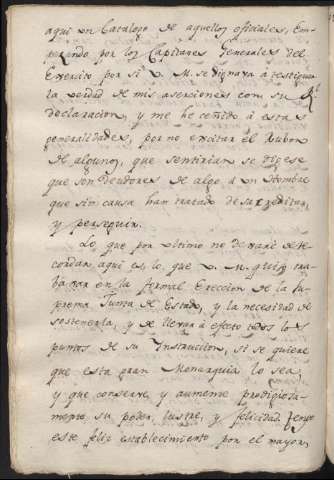 aqui un Catalogo de aquellos oficiales, Em-
pezando por los Capitanes Generales del
Exercito por si V. M. se dignara à testiguar
la verdad de mis aserciones con su Rl
declaracion, y me he ceñido à estas
generalidades, por no excitar el Rubor
de algunos, que sentirian se digese
que son deudores de algo à un Hombre
que sin causa han tratado desacreditar,
y perseguir.
Lo que por ultimo no dexaré de re-
cordar aqui es, lo que V. M. quiso tra-
bajar en la formal Ereccion de la Su-
prema Junta de Estado, y la necesidad de
sostenerla, y de llevar à efecto todos los
puntos de su Instruccion, si se quiere
que esta gran Monarquia lo sea,
y que conserve, y aumente prodigiosa-
mente su poder, lustre, y felicidad. Tengo
este feliz establecimiento por el mayor,